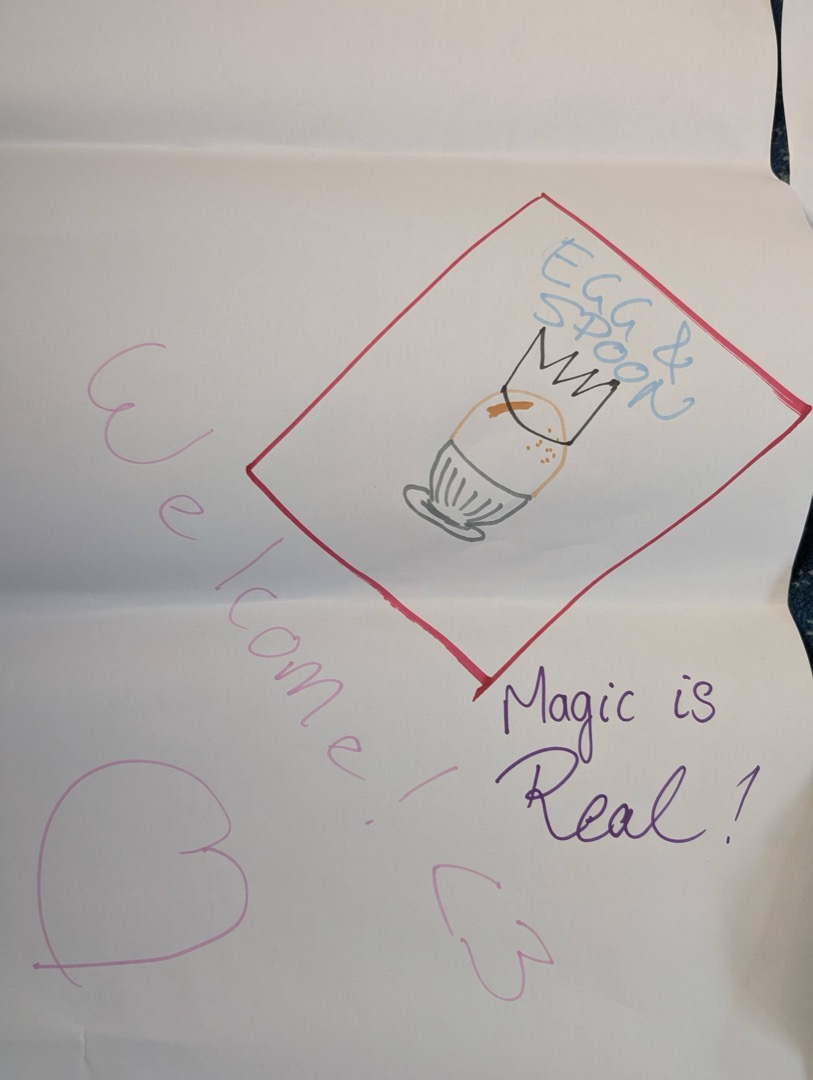 EGG &
SPOON
Welcome!
<3
Magic is
Real!